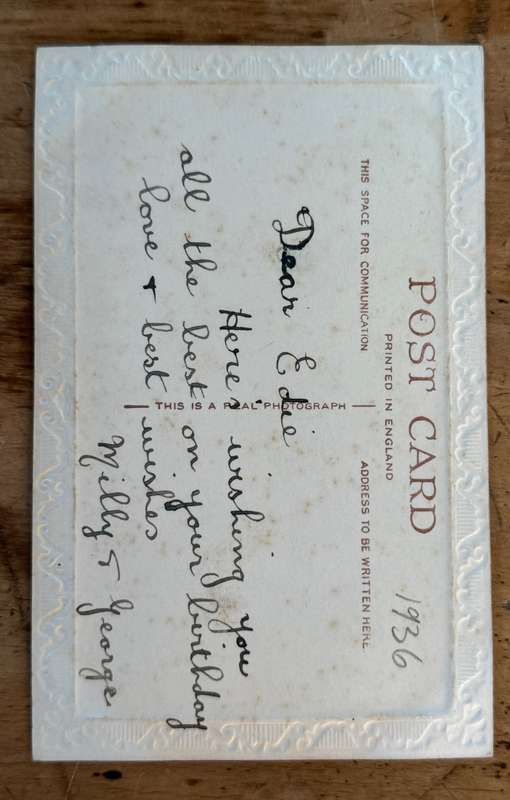 POST CARD
1936
PRINTED IN ENGLAND
THIS SPACE FOR COMMUNICATION
ADDRESS TO BE WRITTEN HERE
THIS IS A REAL PHOTOGRAPH
Dear Edie
Here's wishing you
all the best on your birthday
love + best wishes
Milly & George